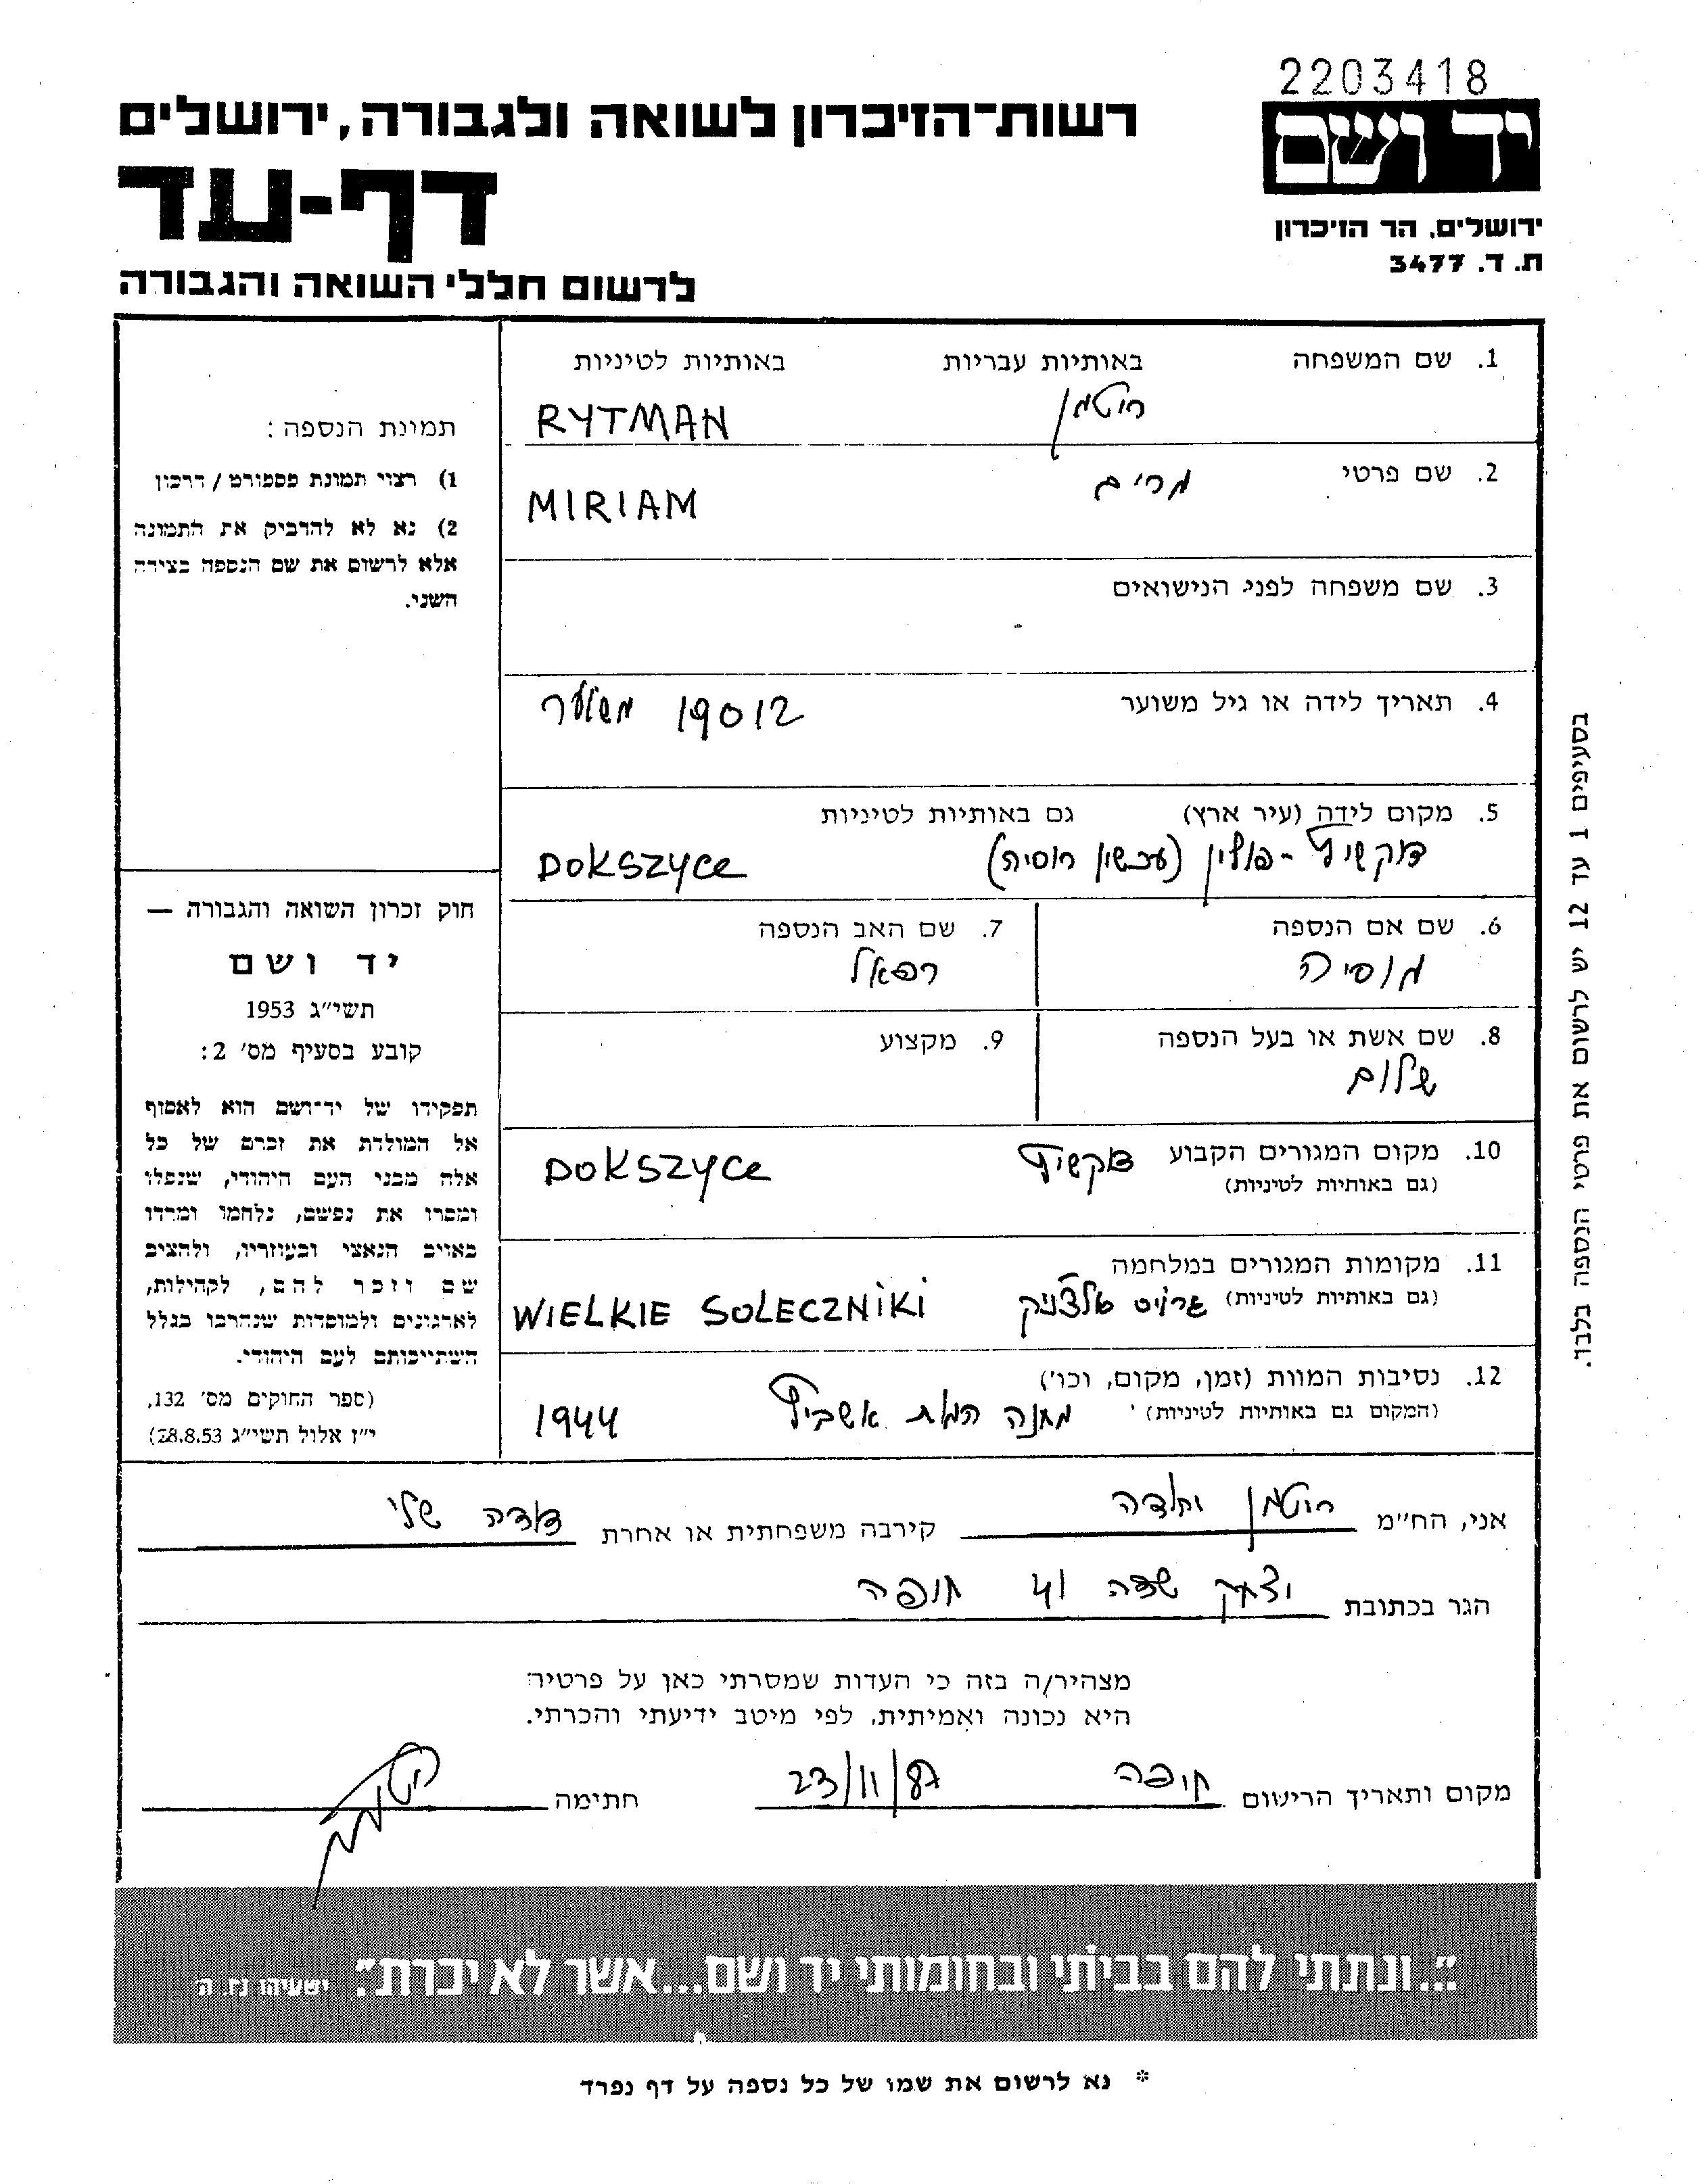 2203418
יד ושם
ירושלים, הר הזיכרון
ת. ד. 3477
רשות־הזיכרון לשואה ולגבורה, ירושלים
דף-עד
לרשום חללי השואה והגבורה
1. שם המשפחה באותיות עבריות באותיות לטיניות
ריטמן RYTMAN
2. שם פרטי מרים
MIRIAM
3. שם משפחה לפני הנישואים
4. תאריך לידה או גיל משוער 19012 משוער
5. מקום לידה (עיר ארץ) גם באותיות לטיניות
דוקשיץ - פולין (עכשיו רוסיה) DOKSZYCE
6. שם אם הנספה 7. שם האב הנספה
מוסיה רפאל
8. שם אשת או בעל הנספה 9. מקצוע
שלום
10. מקום המגורים הקבוע דוקשיץ DOKSZYCE
(גם באותיות לטיניות)
11. מקומות המגורים במלחמה
(גם באותיות לטיניות) WIELKIE SOLECZNIKI
12. נסיבות המוות (זמן, מקום, וכו')
(המקום גם באותיות לטיניות) מחנה המות אשביץ 1944
תמונת הנספה:
1) רצוי תמונת פספורט / דרכון
2) נא לא להדביק את התמונה
אלא לרשום את שם הנספה בצידה
השני.
חוק זכרון השואה והגבורה —
יד ושם
תשי״ג 1953
קובע בסעיף מס' 2:
תפקידו של יד־ושם הוא לאסוף
אל המולדת את זכרם של כל
אלה מבני העם היהודי, שנפלו
ומסרו את נפשם, נלחמו ומרדו
באויב הנאצי ובעוזריו, ולהציב
שם וזכר להם, לקהילות,
לארגונים ולמוסדות שנחרבו בגלל
השתייכותם לעם היהודי.
(ספר החוקים מס' 132,
י״ז אלול תשי״ג 28.8.53)
בסעיפים 1 עד 12 יש לרשום את פרטי הנספה בלבד.
אני, הח״מ ריטמן קירבה משפחתית או אחרת דודה שלי
הגר בכתובת יצחק שדה 41 חיפה
מצהיר/ה בזה כי העדות שמסרתי כאן על פרטיה
היא נכונה ואמיתית, לפי מיטב ידיעתי והכרתי.
מקום ותאריך הרישום חיפה 23/11/87 חתימה
"...ונתתי להם בביתי ובחומותי יד ושם...אשר לא יכרת". ישעיהו נו. ה
* נא לרשום את שמו של כל נספה על דף נפרד